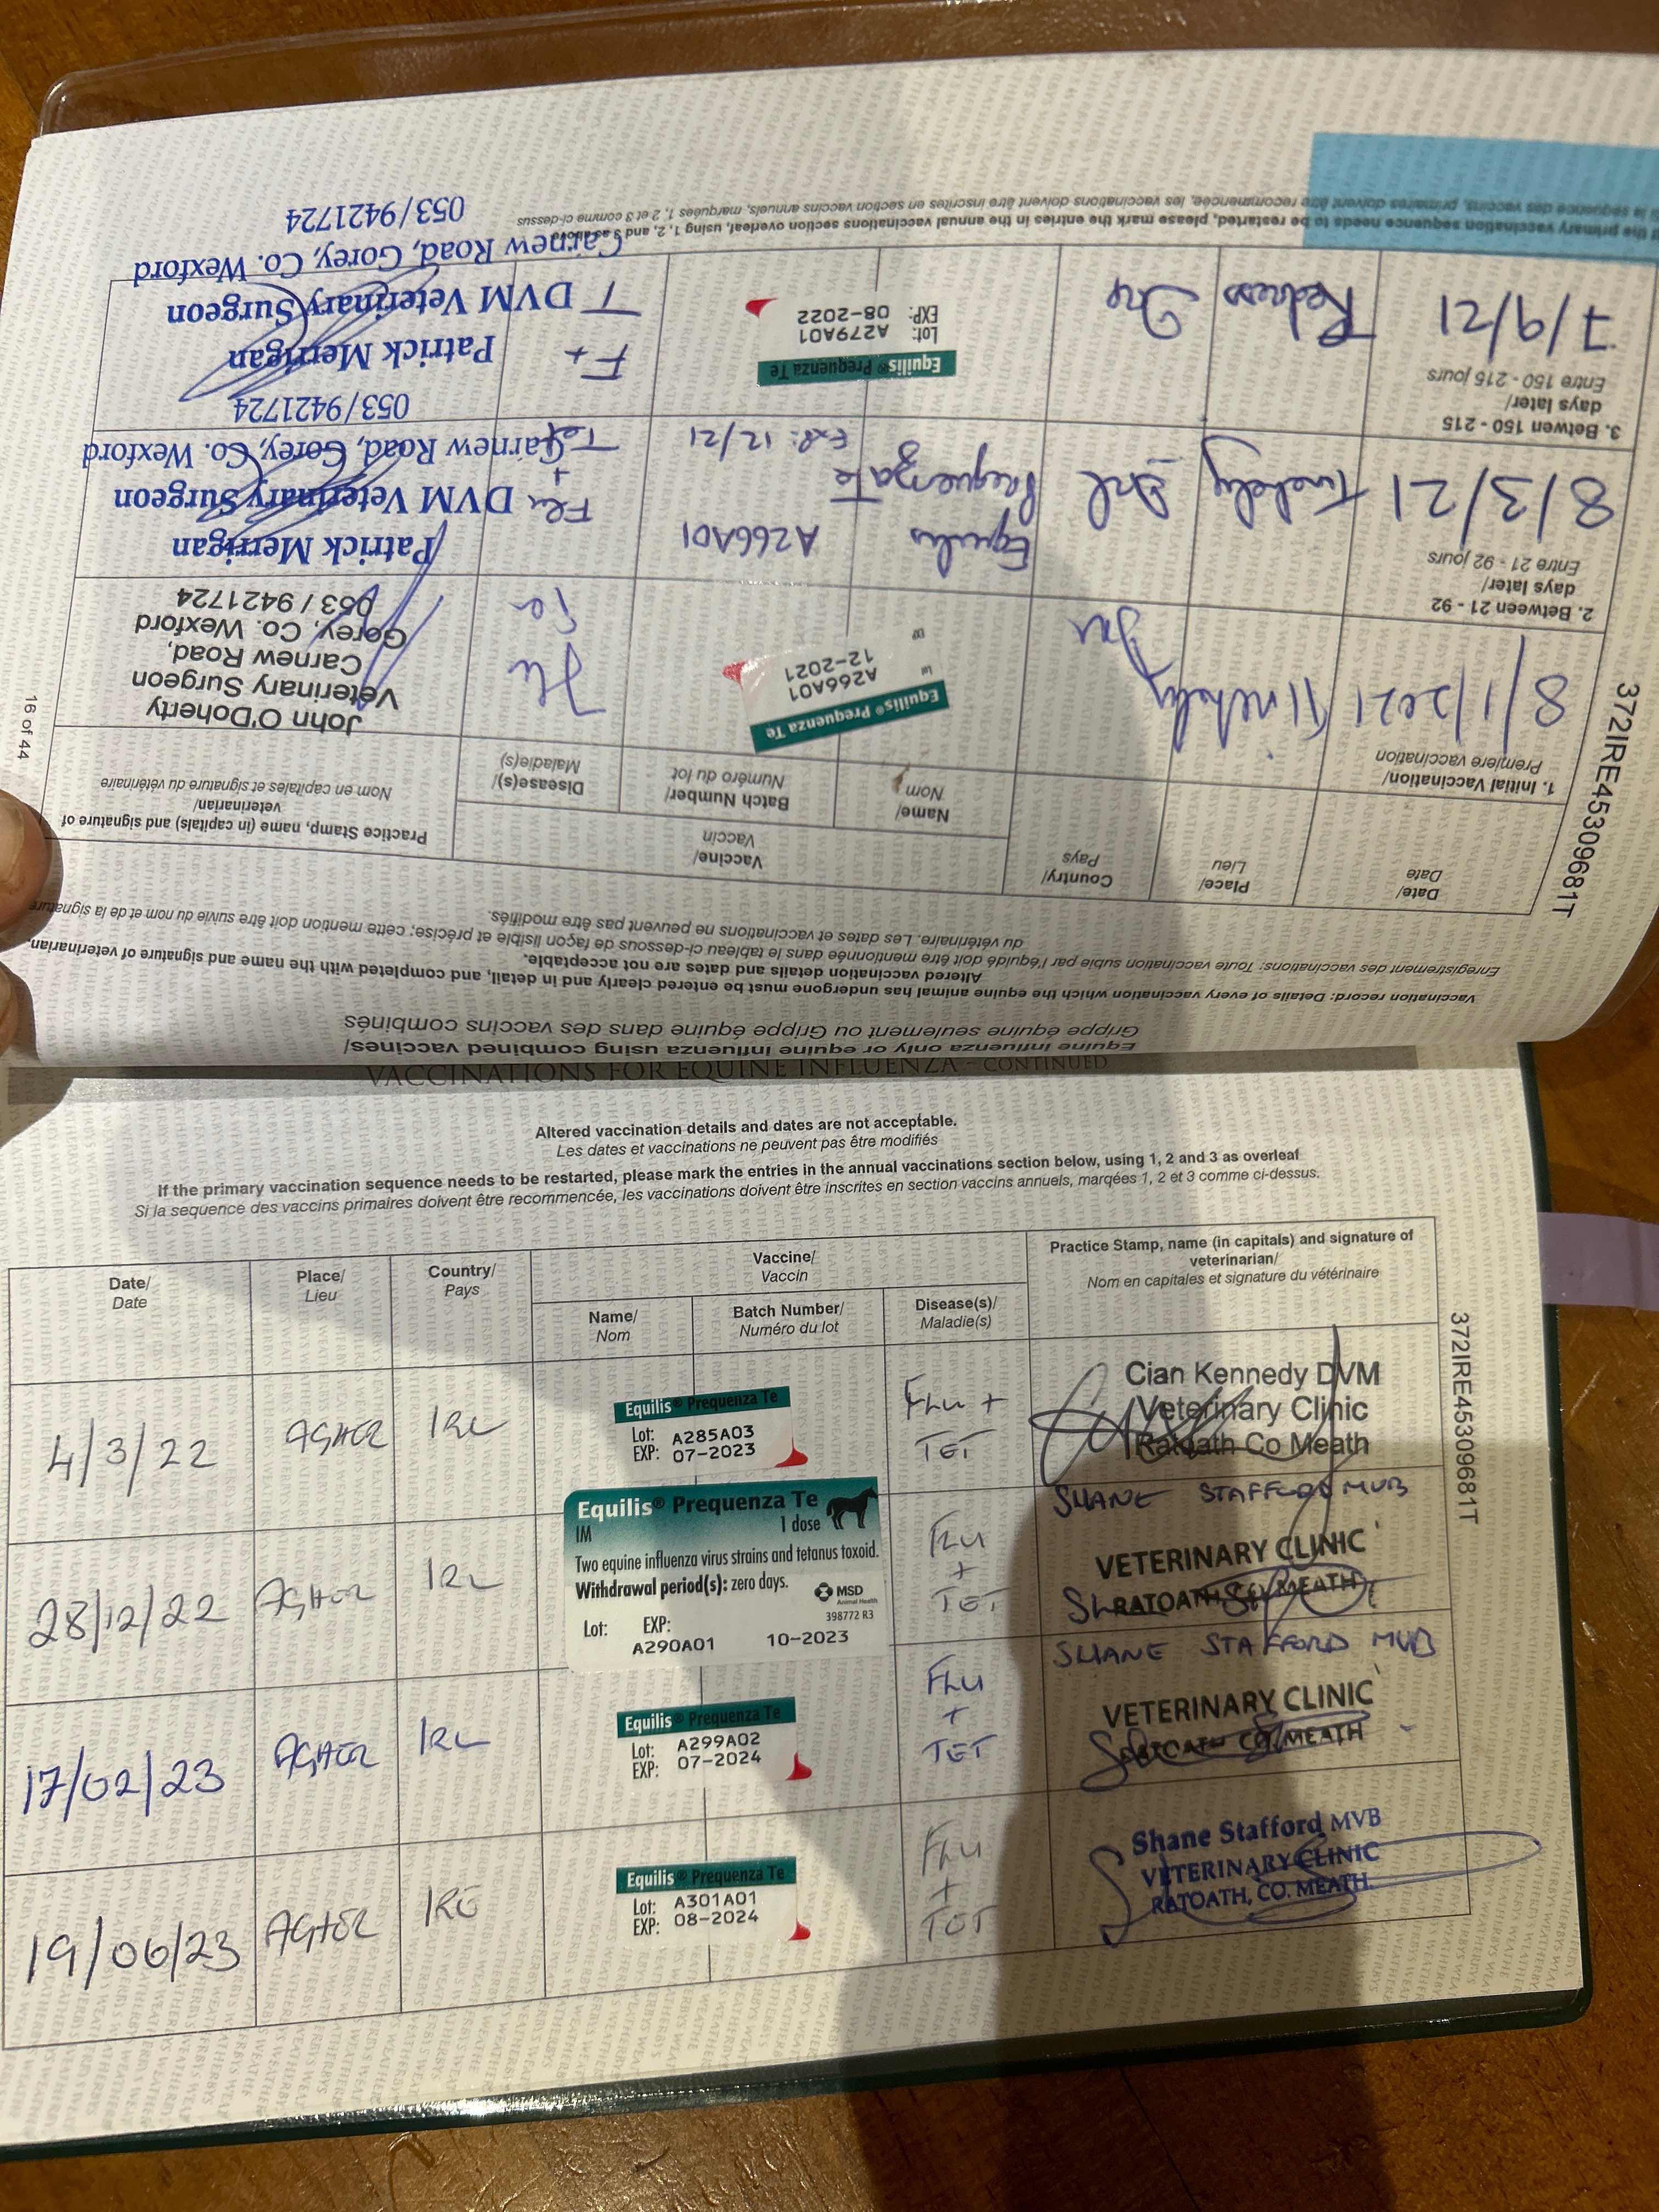 Equine influenza only or equine influenza using combined vaccines/
Grippe équine seulement ou Grippe équine dans des vaccins combinés
Vaccination record: Details of every vaccination which the equine animal has undergone must be entered clearly and in detail, and completed with the name and signature of veterinarian.
Altered vaccination details and dates are not acceptable.
Enregistrement des vaccinations: Toute vaccination subie par l'équidé doit être mentionnée dans le tableau ci-dessous de façon lisible et précise; cette mention doit être suivie du nom et de la signature
du vétérinaire. Les dates et vaccinations ne peuvent pas être modifiés.
Date/
Date
Place/
Lieu
Country/
Pays
Vaccine/
Vaccin
Name/
Nom
Batch Number/
Numéro du lot
Disease(s)/
Maladie(s)
Practice Stamp, name (in capitals) and signature of
veterinarian/
Nom en capitales et signature du vétérinaire
1. Initial Vaccination/
Premiere vaccination
8/1/2021
Equilis® Prequenza Te
Lot
A266A01
12-2021
EXP
John O'Doherty
Veterinary Surgeon
Carnew Road,
Gorey, Co. Wexford
053 / 9421724
2. Between 21 - 92
days later/
Entre 21 - 92 jours
8/3/21
Equilis
Prequenza Te
A266A01
Exp: 12/21
Flu
+
Tet
Patrick Merrigan
DVM Veterinary Surgeon
Carnew Road, Gorey, Co. Wexford
053/9421724
3. Betwen 150 - 215
days later/
Entre 150 - 215 jours
7/9/21
Equilis® Prequenza Te
Lot: A279A01
EXP: 08-2022
F +
T
Patrick Merrigan
DVM Veterinary Surgeon
Carnew Road, Gorey, Co. Wexford
053/9421724
the primary vaccination sequence needs to be restarted, please mark the entries in the annual vaccinations section overleaf, using 1, 2, and 3 as above
la sequence des vaccins, primaires doivent être recommencée, les vaccinations doivent être inscrites en section vaccins annuels, marquées 1, 2 et 3 comme ci-dessus
372IRE45309681T
16 of 44
VACCINATIONS FOR EQUINE INFLUENZA - CONTINUED
Altered vaccination details and dates are not acceptable.
Les dates et vaccinations ne peuvent pas être modifiés
If the primary vaccination sequence needs to be restarted, please mark the entries in the annual vaccinations section below, using 1, 2 and 3 as overleaf
Si la sequence des vaccins primaires doivent être recommencée, les vaccinations doivent être inscrites en section vaccins annuels, marqées 1, 2 et 3 comme ci-dessus.
Date/
Date
Place/
Lieu
Country/
Pays
Vaccine/
Vaccin
Name/
Nom
Batch Number/
Numéro du lot
Disease(s)/
Maladie(s)
Practice Stamp, name (in capitals) and signature of
veterinarian/
Nom en capitales et signature du vétérinaire
4/3/22
AGHER
IRL
Equilis® Prequenza Te
Lot: A285A03
EXP: 07-2023
FLU +
TET
Cian Kennedy DVM
Veterinary Clinic
Ratoath Co Meath
28/12/22
AGHER
IRL
Equilis® Prequenza Te
IM
1 dose
Two equine influenza virus strains and tetanus toxoid.
Withdrawal period(s): zero days.
MSD
Animal Health
398772 R3
Lot: EXP:
A290A01 10-2023
FLU
+
TET
SHANE STAFFORD MVB
VETERINARY CLINIC
RATOATH, CO. MEATH
17/02/23
AGHER
IRL
Equilis® Prequenza Te
Lot: A299A02
EXP: 07-2024
FLU
+
TET
SHANE STAFFORD MVB
VETERINARY CLINIC
RATOATH CO. MEATH
19/06/23
AGHER
IRE
Equilis® Prequenza Te
Lot: A301A01
EXP: 08-2024
FLU
+
TET
Shane Stafford MVB
VETERINARY CLINIC
RATOATH, CO. MEATH.
372IRE45309681T